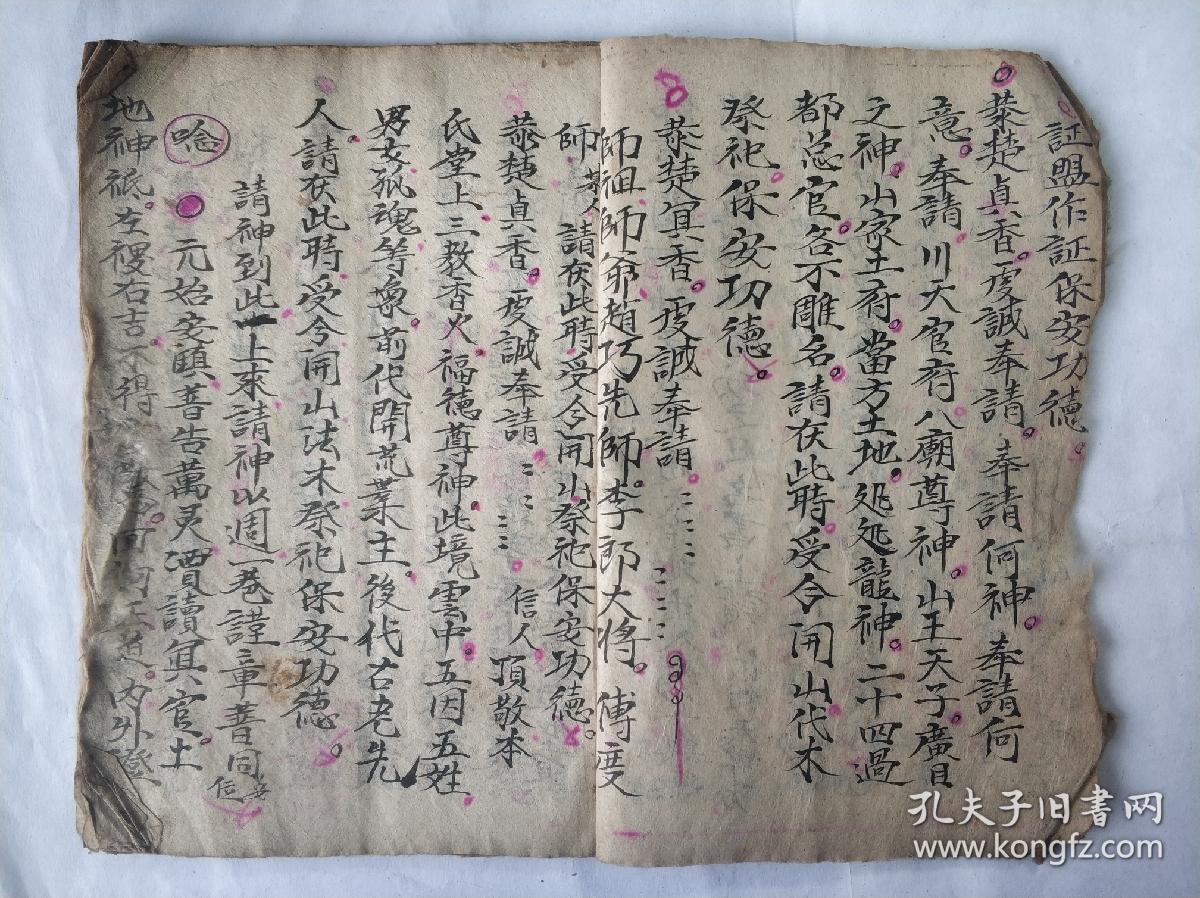 証盟作証保安功德
恭焚真香虔誠奉請奉請何神奉請何
意奉請川大官府八廟尊神山王天子廣目
文神山家土府當方土地延延龍神二十四過
都总官名不雕名請在此時受今開山代木
祭祀保安功德
恭焚真香虔誠奉請
師祖師爺趙巧先師李郎大将傅度
師 等人 請在此時受今開山祭祀保安功德
恭焚真香虔誠奉請 信人 頂敬本
氏堂上三教香火福德尊神此境雲中五因五姓
男女孤魂等衆前代開荒業主後代古老先
人請在此時受今開山法木祭祀保安功德
請神到此一上來請神以週一卷謹章普同
唸 元始安鎮普告萬灵 真官土
地神祇左稷右吉不得 内外澄
孔夫子旧书网
www.kongfz.com